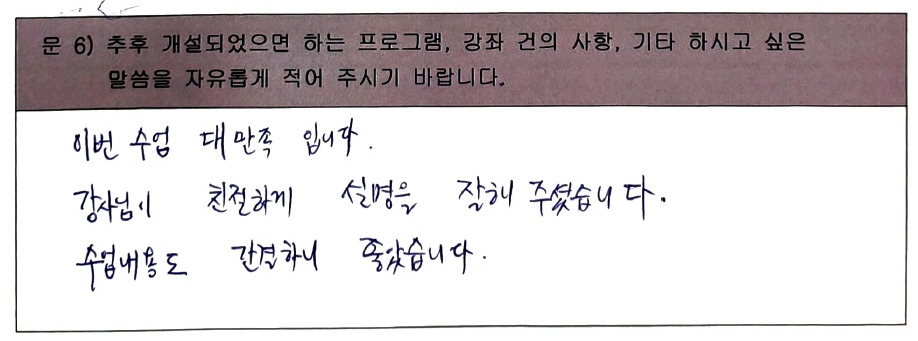 문 6) 추후 개설되었으면 하는 프로그램, 강좌 건의 사항, 기타 하시고 싶은
말씀을 자유롭게 적어 주시기 바랍니다.
이번 수업 대만족 입니다.
강사님이 친절하게 설명을 잘해 주셨습니다.
수업내용도 간결하니 좋았습니다.